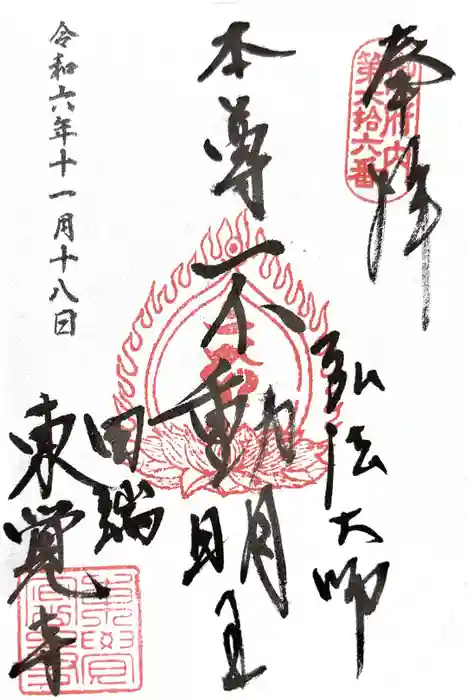 奉拝
御府内
第六拾六番
弘法大師
本尊不動明王
田端
東覚寺
令和六年十一月十八日